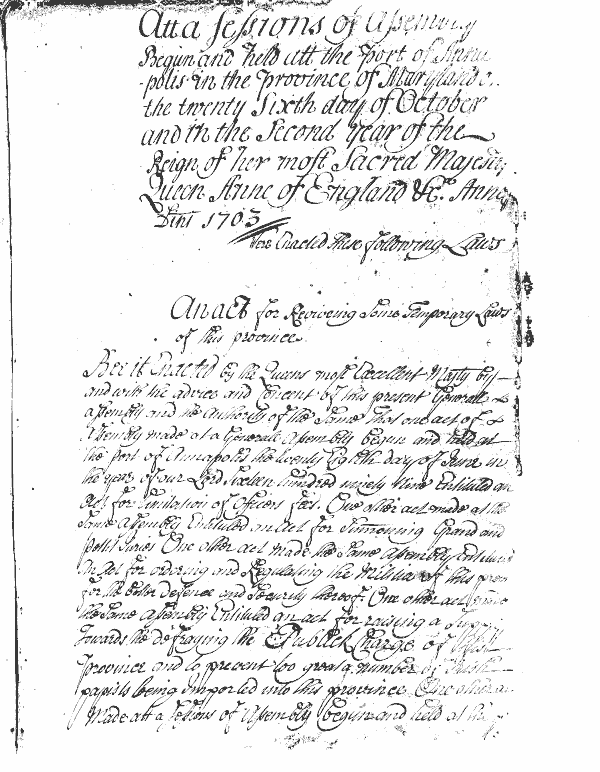 Att a Sessions of Assembly
Begun and held att the Port of Anna
polis in the Province of Maryland
the twenty Sixth day of October
and in the Second Year of the
Reign of her most Sacred Majesty
Queen Anne of England &c. Anno
Dini 1703
Were Enacted these following Laws
An act for Reviveing Some Temporary Laws
of this province
Bee it Enacted by the Queens most Excellent Majty by
and with the advice and Consent of this present Generall
assembly and the Authority of the Same That one act of
Assembly made at a Generall Assembly begun and held at
the Port of Annapolis the twenty Eighth day of June in
the year of our Lord Sixteen hundred ninety Nine Entituled an
act for Limitation of Officers fees. One other act made at the
Same assembly Entituled an Act for Summoning Grand and
Pettit Juries One other act made the Same Assembly entituled
An act for ordering and Regulating the Militia of this prov
for the better defence and Security thereof. One other act made
the Same Assembly Entituled an act for raiseing a Supp
towards the defraying the Publick Charge of this
Province and to prevent too great a number of Irish
papists being Imported into this province. One other a
Made att a Sessions of Assembly begun and held at the